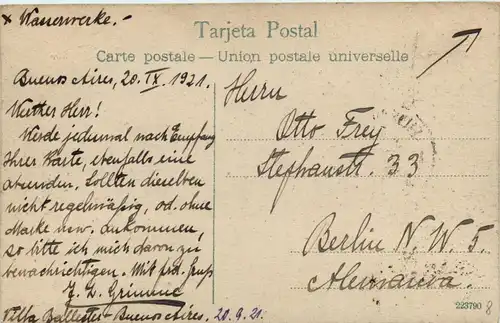 x Wasserwerke.-
Tarjeta Postal
Carte postale — Union postale universelle
Buenos Aires, 20. IX. 1921.
Werther Herr!
Werde jedesmal nach Empfang
Ihrer Karte, ebenfalls eine
absenden. Sollten dieselben
nicht regelmäßig, od. ohne
Marke usw. ankommen,
so bitte ich mich davon zu
benachrichtigen. Mit frd. Gruß
Villa Ballester - Buenos Aires. 20.9.21.
Herrn
Otto Frey
Stephanstr. 33
Berlin N.W. 5.
Alemania.
223790
8